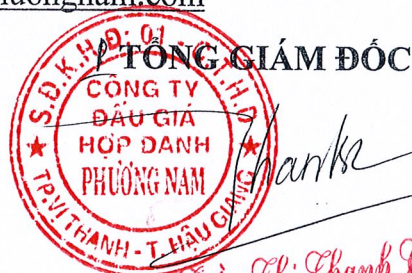 TỔNG GIÁM ĐỐC
S.Đ.K.H.Đ: 01 - C.T.H.D
CÔNG TY
ĐẤU GIÁ
HỢP DANH
PHƯƠNG NAM
TP.VỊ THANH - T. HẬU GIANG
Thị Thanh